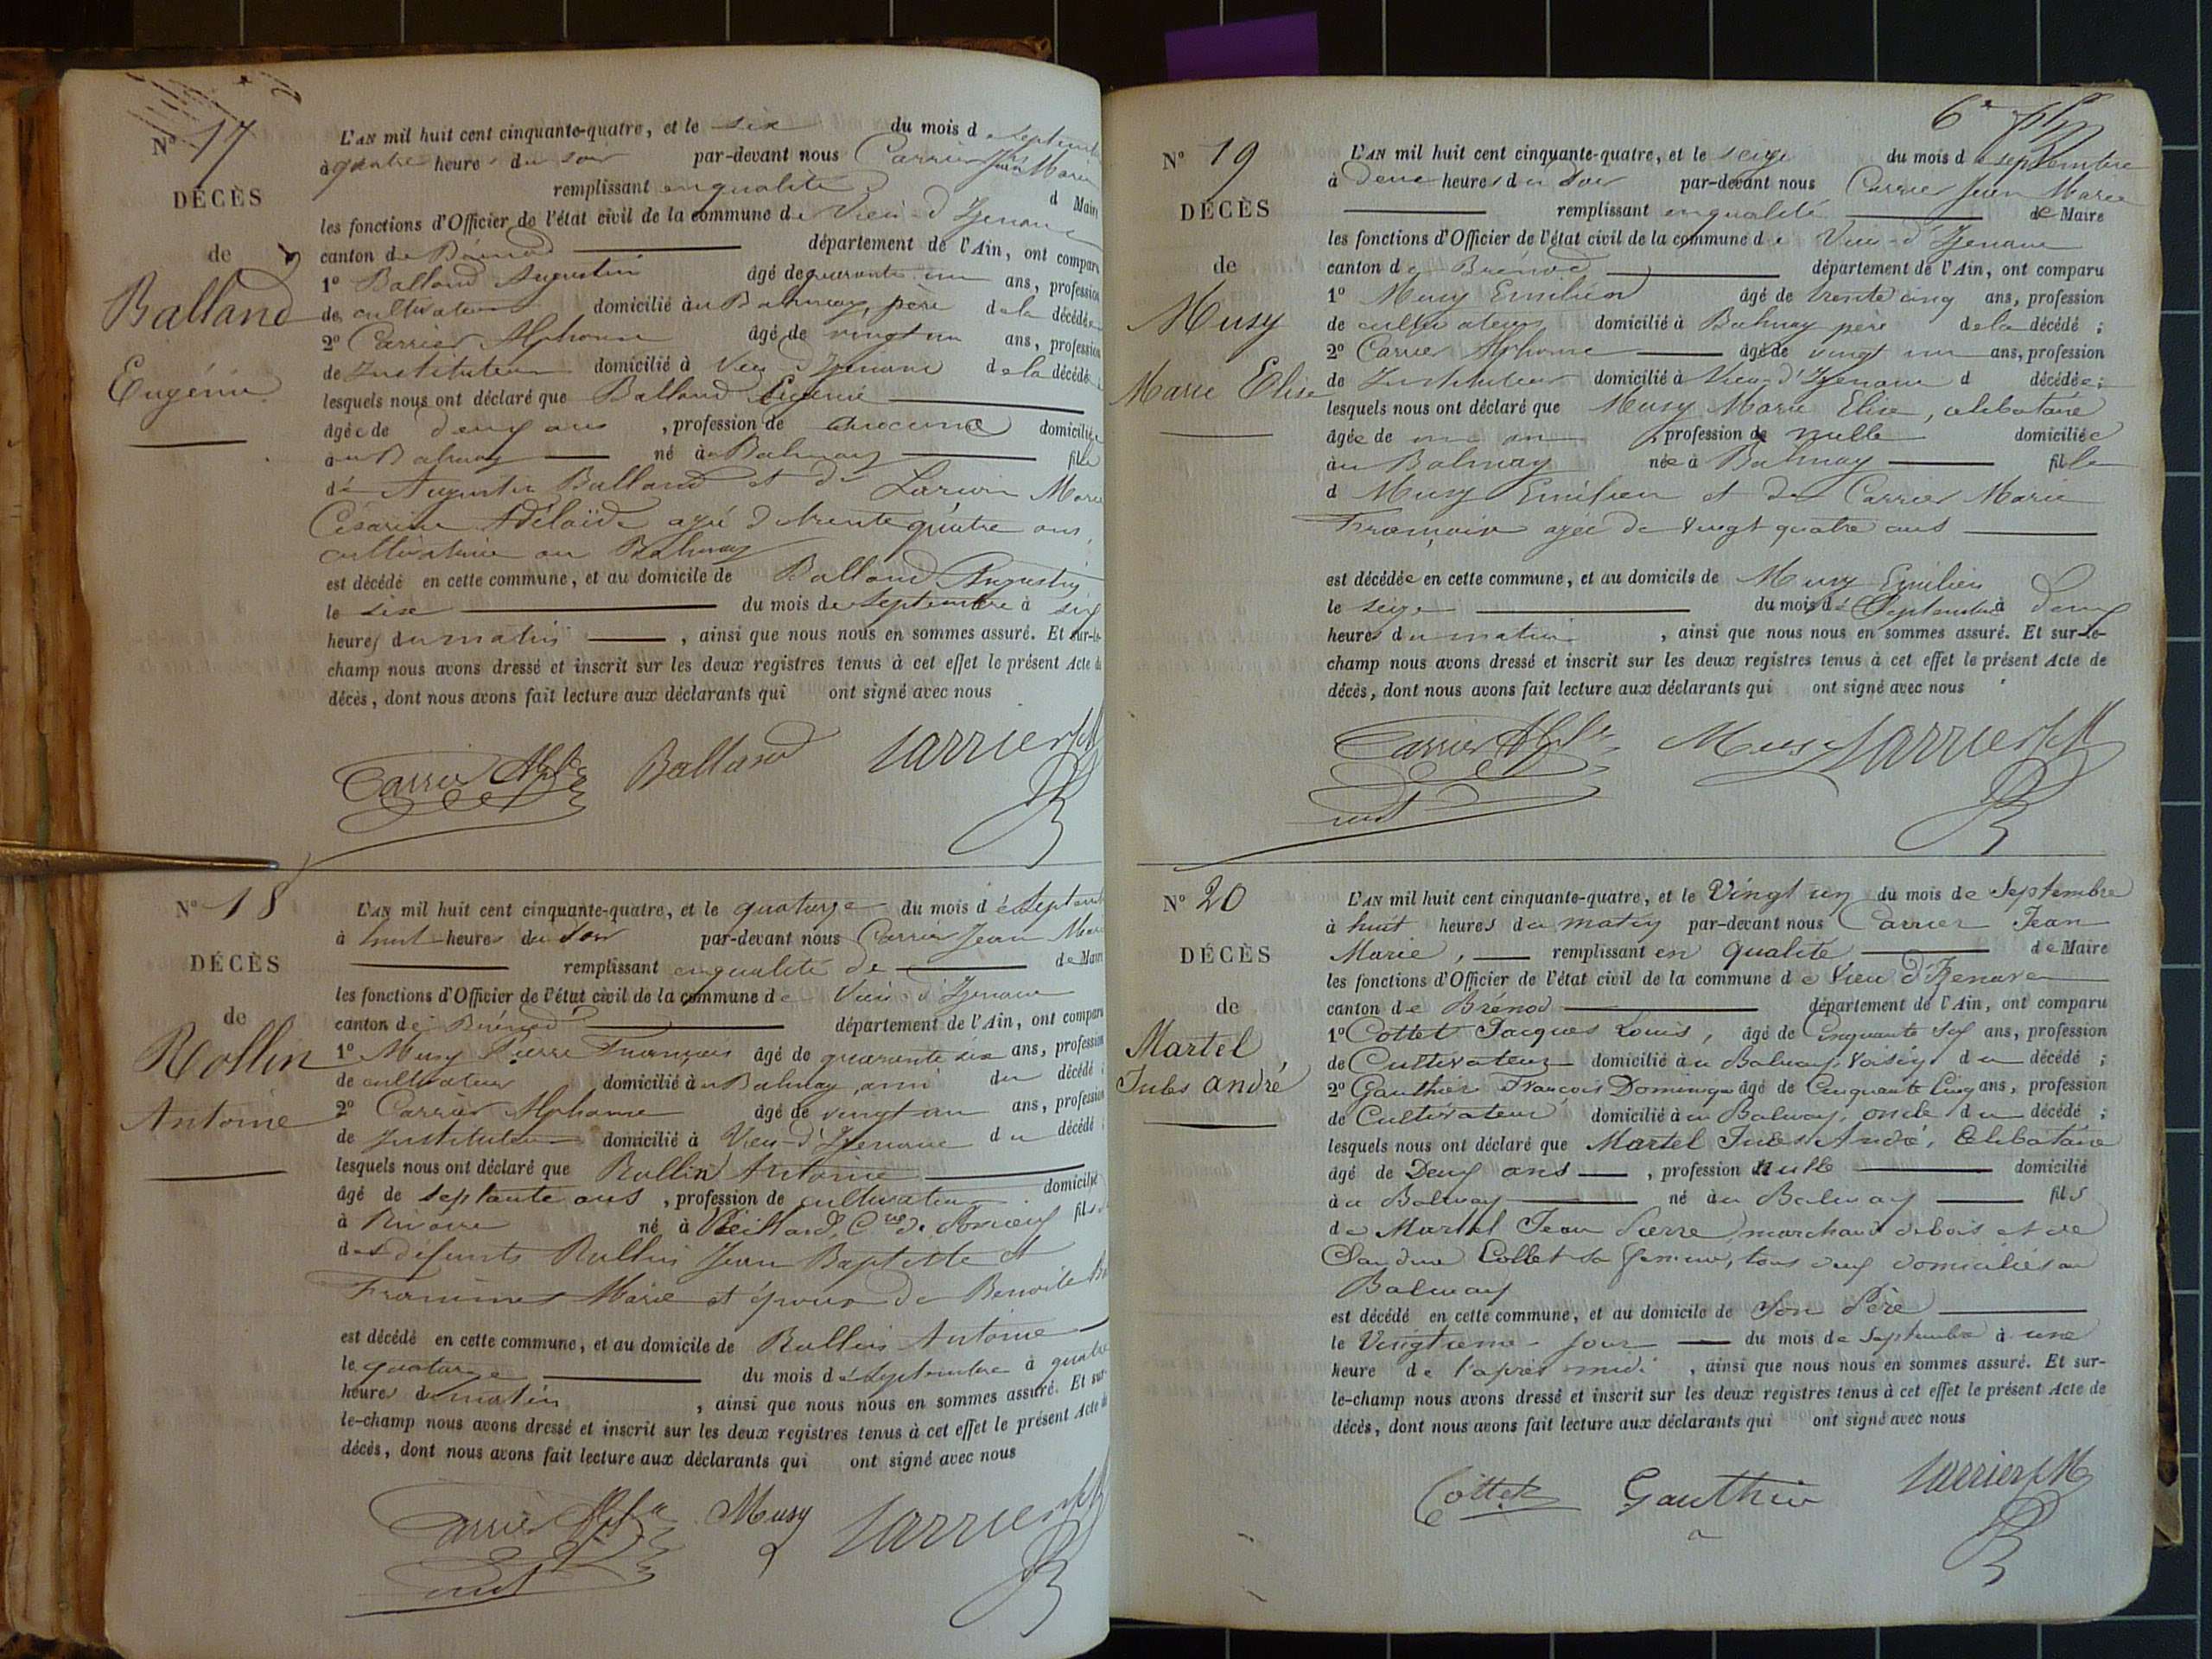 N° 17
DÉCÈS
de
Balland
Eugénie
L'AN mil huit cent cinquante-quatre, et le six du mois de Septemb
à quatre heures du soir par-devant nous Carrier Jean Marie
remplissant en qualité d Maire
les fonctions d'Officier de l'état civil de la commune de Vieu-d'Izenave
canton de Brénod département de l'Ain, ont comparu
1° Balland Augustin âgé de quarante un ans, profession
de cultivateur domicilié au Balmay, père de la décédée
2° Carrier Alphonse âgé de vingt un ans, profession
de Instituteur domicilié à Vieu d'Izenave de la décédée
lesquels nous ont déclaré que Balland Eugénie
âgée de deux ans , profession de aucune domiciliée
au Balmay né au Balmay fille
de Augustin Balland et de Marie
Césarine Adélaïde agée de trente quatre ans,
cultivatrice au Balmay
est décédé en cette commune, et au domicile de Balland Augustin
le six du mois de septembre à six
heures du matin , ainsi que nous nous en sommes assuré. Et sur-le-
champ nous avons dressé et inscrit sur les deux registres tenus à cet effet le présent Acte de
décès, dont nous avons fait lecture aux déclarants qui ont signé avec nous
Carrier Alph Balland Carrier JM
N° 18
DÉCÈS
de
Rollin
Antoine
L'AN mil huit cent cinquante-quatre, et le quatorze du mois de Septemb
à huit heures du soir par-devant nous Carrier Jean Marie
remplissant en qualité de de Maire
les fonctions d'Officier de l'état civil de la commune de Vieu-d'Izenave
canton de Brénod département de l'Ain, ont comparu
1° Musy Pierre François âgé de quarante six ans, profession
de cultivateur domicilié au Balmay, ami du décédé ;
2° Carrier Alphonse âgé de vingt un ans, profession
de Instituteur domicilié à Vieu-d'Izenave du décédé ;
lesquels nous ont déclaré que Rollin Antoine
âgé de septante ans , profession de cultivateur domicilié
à né à Veillard, Cne de fils
des défunts Rollin Jean Baptiste et
Marie et époux de Benoite
est décédé en cette commune, et au domicile de Rollin Antoine
le quatorze du mois de Septembre à quatre
heures du matin , ainsi que nous nous en sommes assuré. Et sur-
le-champ nous avons dressé et inscrit sur les deux registres tenus à cet effet le présent Acte de
décès, dont nous avons fait lecture aux déclarants qui ont signé avec nous
Carrier Alph Musy Carrier JM
6e
N° 19
DÉCÈS
de
Musy
Marie Elise
L'AN mil huit cent cinquante-quatre, et le seize du mois de septembre
à deux heures du soir par-devant nous Carrier Jean Marie
remplissant en qualité de Maire
les fonctions d'Officier de l'état civil de la commune de Vieu-d'Izenave
canton de Brénod département de l'Ain, ont comparu
1° Musy Emilien âgé de trente cinq ans, profession
de cultivateur domicilié à Balmay père de la décédé ;
2° Carrier Alphonse âgé de vingt un ans, profession
de Instituteur domicilié à Vieu-d'Izenave d décédée ;
lesquels nous ont déclaré que Musy Marie Elise, célibataire
âgée de un an , profession de nulle domiciliée
au Balmay née à Balmay fille
d Musy Emilien et de Carrier Marie
Françoise agée de vingt quatre ans
est décédée en cette commune, et au domicile de Musy Emilien
le seize du mois de Septembre à deux
heures du matin , ainsi que nous nous en sommes assuré. Et sur-le-
champ nous avons dressé et inscrit sur les deux registres tenus à cet effet le présent Acte de
décès, dont nous avons fait lecture aux déclarants qui ont signé avec nous
Carrier Alph Musy Carrier JM
N° 20
DÉCÈS
de
Martel
Jules andré
L'AN mil huit cent cinquante-quatre, et le Vingt un du mois de Septembre
à huit heures du matin par-devant nous Carrier Jean
Marie, remplissant en qualité de Maire
les fonctions d'Officier de l'état civil de la commune de Vieu d'Izenave
canton de Brénod département de l'Ain, ont comparu
1° Cottet Jacques Louis, âgé de Cinquante Six ans, profession
de Cultivateur domicilié au Balmay, voisin du décédé ;
2° Gauthier François Dominique âgé de Cinquante Cinq ans, profession
de Cultivateur domicilié au Balmay, oncle du décédé ;
lesquels nous ont déclaré que Martel Jules André, Célibataire
âgé de Deux ans , profession Nulle domicilié
au Balmay né au Balmay fils
de Martel Jean Pierre marchand de bois et de
Claudine Collet sa femme, tous deux domiciliés au
Balmay
est décédé en cette commune, et au domicile de Son Père
le Vingtième jour du mois de Septembre à une
heure de l'après midi , ainsi que nous nous en sommes assuré. Et sur-
le-champ nous avons dressé et inscrit sur les deux registres tenus à cet effet le présent Acte de
décès, dont nous avons fait lecture aux déclarants qui ont signé avec nous
Cottet Gauthier Carrier JM